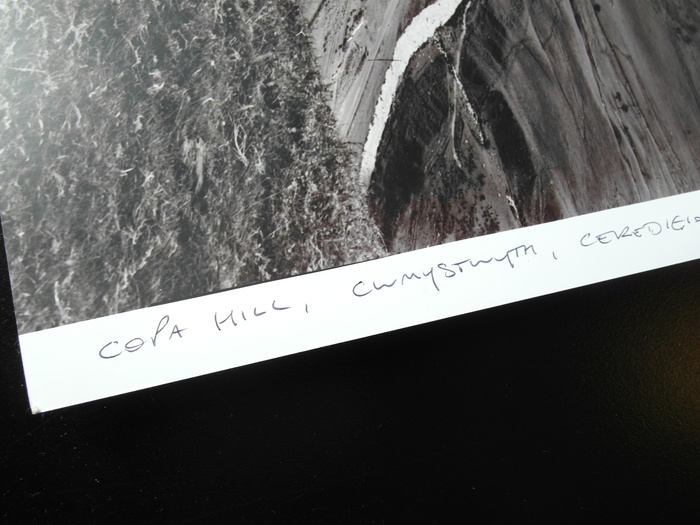 COPA HILL, CWMYSTWYTH, CEREDIGI